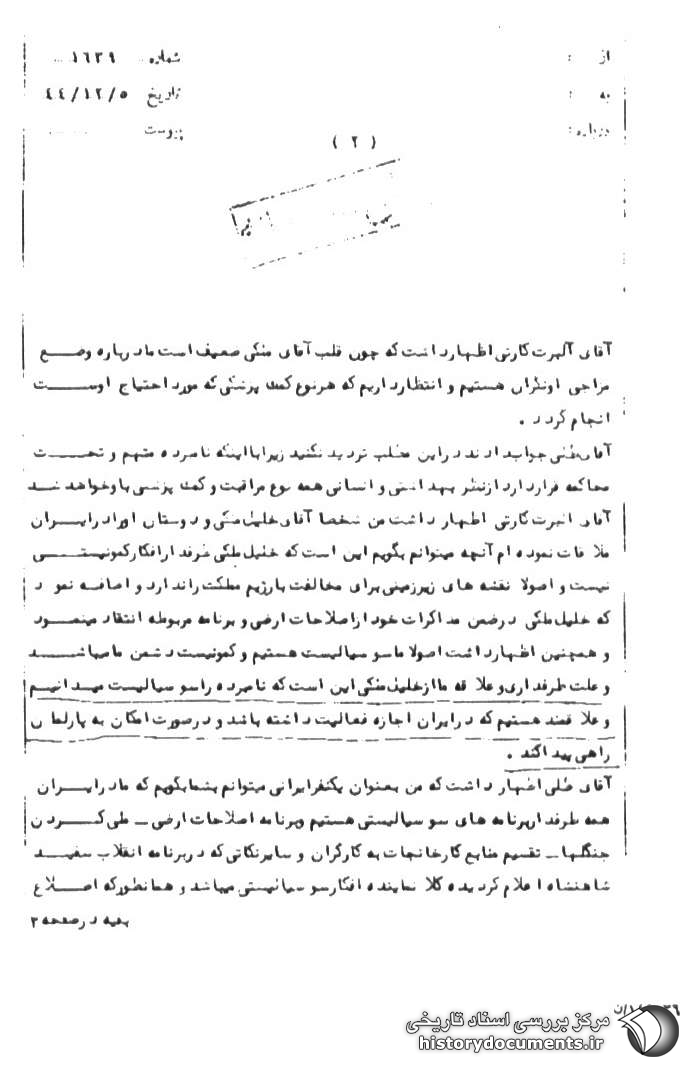 از :
شماره ۱۶۳۹
به :
تاریخ ۴۴/۱۲/۵
درباره :
پیوست
( ۲ )
آقای آلبرت کارتی اظهار داشت که چون قلب آقای ملکی ضعیف است ما درباره وضع
مزاجی او نگران هستیم و انتظار داریم که هر نوع کمک پزشکی که مورد احتیاج اوست
انجام گردد .
آقای جواب دادند در این مطلب تردید نکنید زیرا با اینکه نامبرده متهم و تحت
محاکمه قرار دارد از نظر بهداشتی و انسانی همه نوع مراقبت و کمک پزشکی باو خواهد شد
آقای آلبرت کارتی اظهار داشت من شخصا آقای خلیل ملکی و دوستان او را در ایران
ملاقات نموده ام آنچه میتوانم بگویم این است که خلیل ملکی طرفدار افکار کمونیستی
نیست و اصولا نقشه های زیرزمینی برای مخالفت با رژیم مملکت را ندارد و اضافه نمود
که خلیل ملکی در ضمن مذاکرات خود از اصلاحات ارضی و برنامه مربوطه انتقاد مینمود
و همچنین اظهار داشت اصولا ما سوسیالیست هستیم و کمونیست دشمن ما میباشد
و علت طرفداری و علاقه ما از خلیل ملکی این است که نامبرده را سوسیالیست میدانیم
و علاقمند هستیم که در ایران اجازه فعالیت داشته باشد و در صورت امکان به پارلمان
راهی پیدا کند .
آقای اظهار داشت که من بعنوان یکنفر ایرانی میتوانم بشما بگویم که ما در ایران
همه طرفدار برنامه های سوسیالیستی هستیم و برنامه اصلاحات ارضی ــ ملی کردن
جنگلها ــ تقسیم منافع کارخانجات به کارگران و سایر نکاتی که در برنامه انقلاب سفید
شاهنشاه اعلام گردیده کلا نماینده افکار سوسیالیستی میباشد و همانطور که اطلاع
بقیه در صفحه ۳
مرکز بررسی اسناد تاریخی
historydocuments.ir